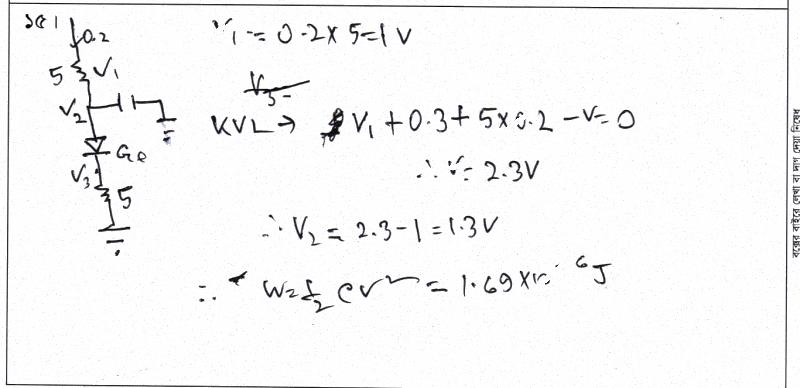 0.2
5 V₁
V₂
Ge
V₃
5
V₁ = 0.2 x 5 = 1 V
KVL → V₁ + 0.3 + 5 x 0.2 - V = 0
∴ V = 2.3V
∴ V₂ = 2.3 - 1 = 1.3V
∴ W = ½ CV² = 1.69 x 10⁻⁶ J
বক্সের বাইরে লেখা বা দাগ দেয়া নিষেধ